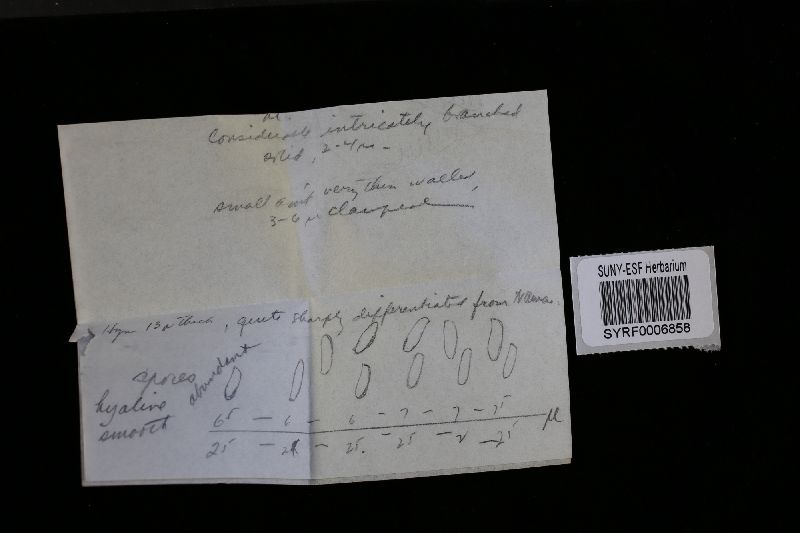 M.
Considerable intricately branched
solid, 2-4 μ -
small amt very thin walled
3-6 μ clamped
Hym 13 μ thick, quite sharply differentiated from
spores abundant
hyaline
smooth
65 - 6 - 6 - 7 - 7 - 75 μ
25 - 2 - 25 - 25 - 2 - 25
SUNY-ESF Herbarium
SYRF0006858